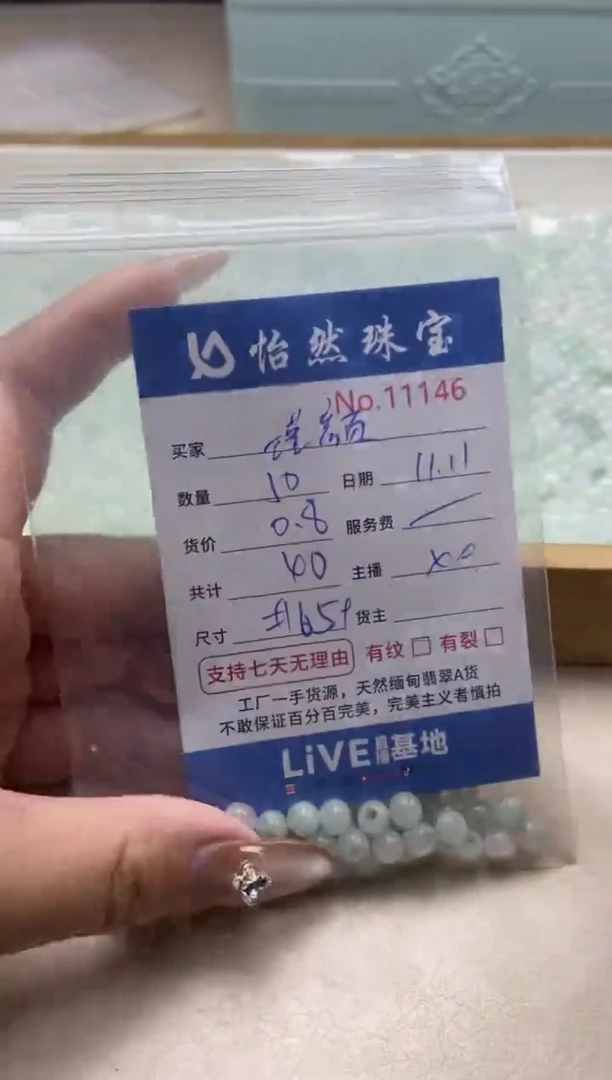 怡然珠宝
No.11146
买家
数量 50 日期 11.11
货价 0.8 服务费
共计 40 主播
尺寸 货主
支持七天无理由 有纹 有裂
工厂一手货源，天然缅甸翡翠A货
不敢保证百分百完美，完美主义者慎拍
LiVE直播基地